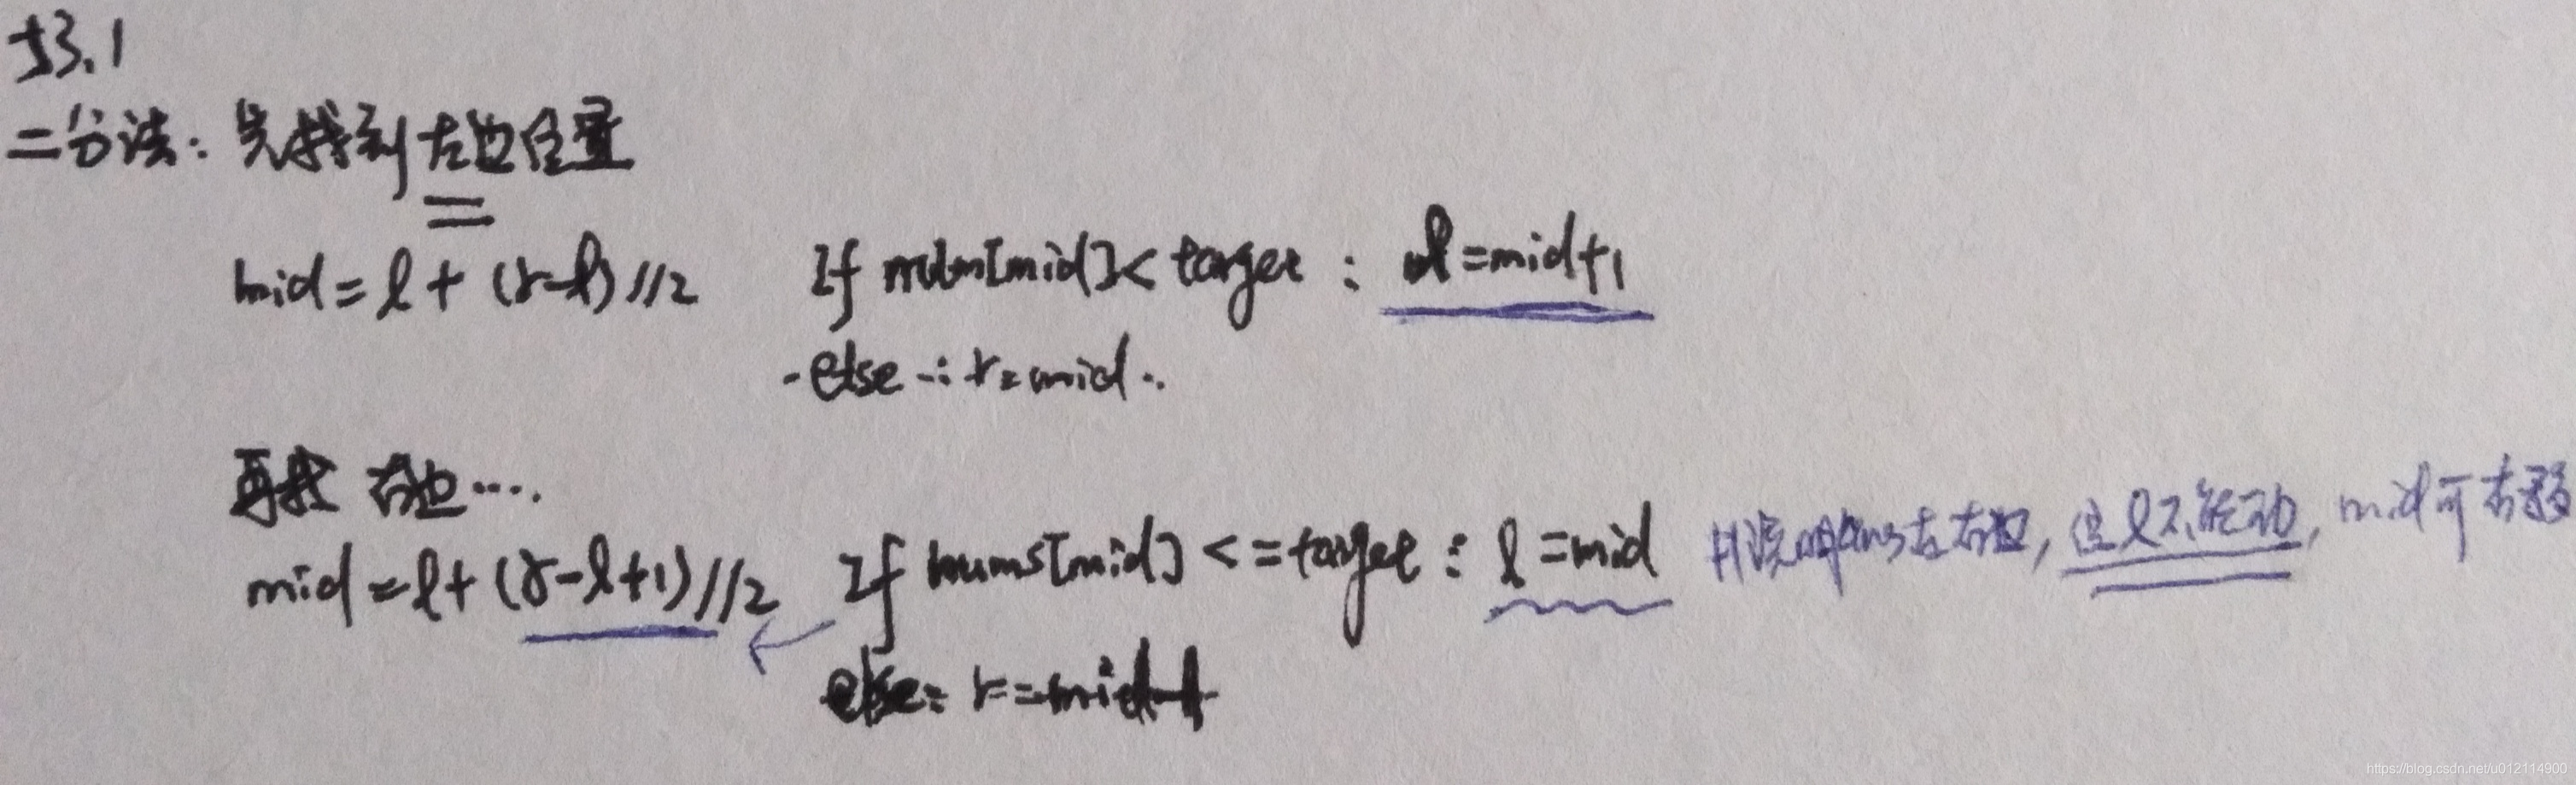 53.1
二分法: 先找到左边位置
mid = l + (r-l)//2 If num[mid] < target : l = mid+1
else : r = mid
再找 右边 ....
mid = l + (r-l+1)//2 If nums[mid] <= target : l = mid 只说明ans在右边, 但l不能动, mid可右移
else: r = mid-1
https://blog.csdn.net/u012114900